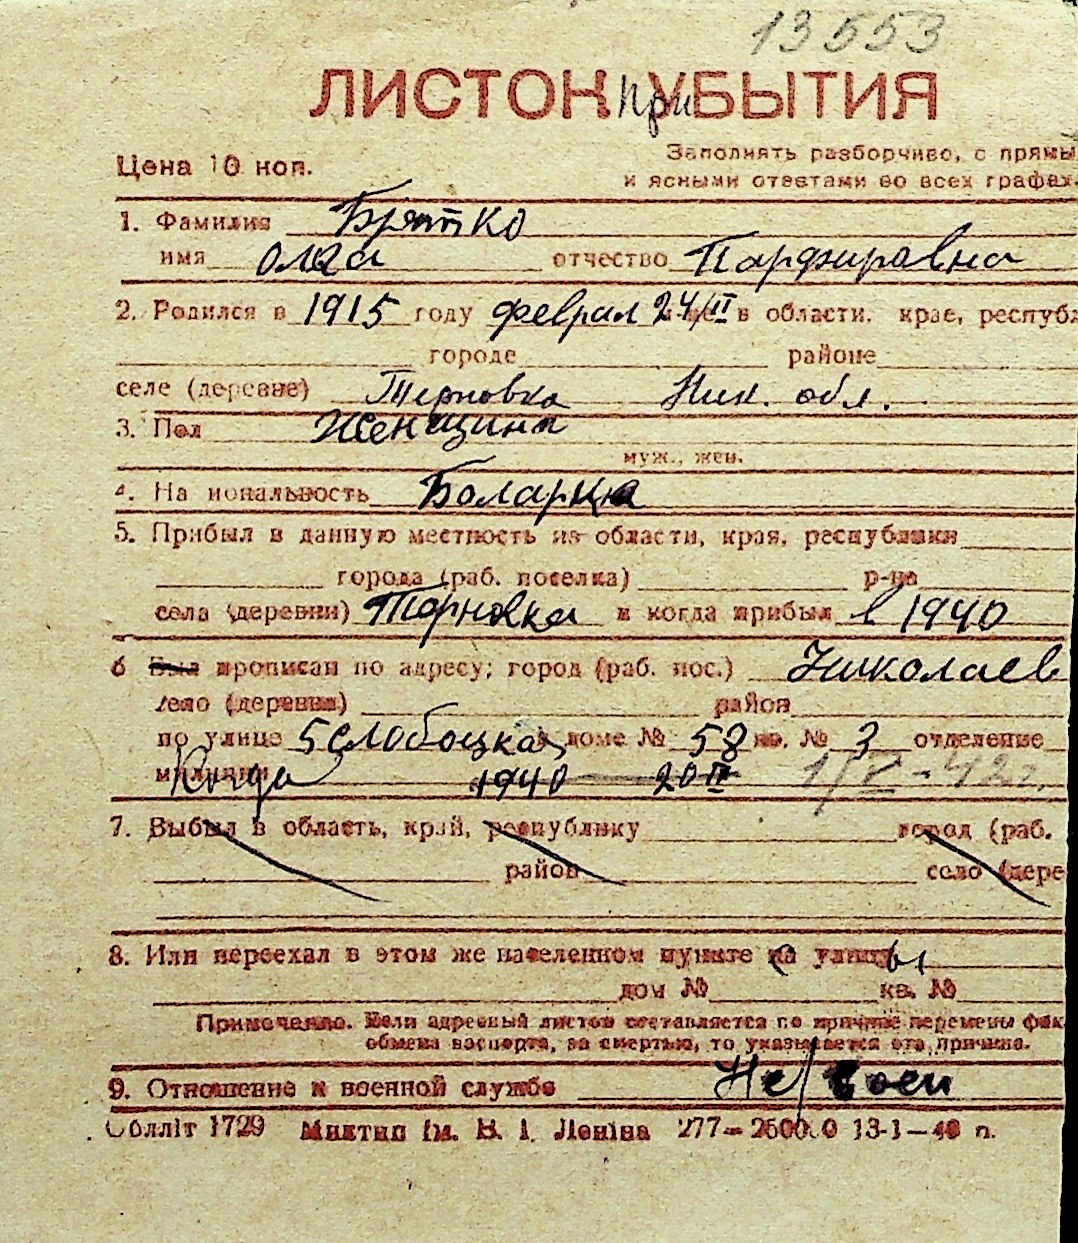 13553
ЛИСТОК При УБЫТИЯ
Цена 10 коп.
Заполнять разборчиво, с прямы
и ясными ответами во всех графах.
1. Фамилия Братко
имя Олга отчество Парфировна
2. Родился в 1915 году феврал 24/II в области, крае, республ
городе районе
селе (деревне) Терновка Ник. обл.
3. Пол Женщина
муж., жен.
4. На иональность Боларка
5. Прибыл в данную местность из области, края, республики
города (раб. поселка) р-на
села (деревни) Терновка и когда прибыл в 1940
6 Был прописан по адресу: город (раб. пос.) Николаев
село (деревня) район
по улице 5 Слобоцкая доме № 58 кв. № 3 отделение
милиции Когда 1940 20 II 1/V-42г.
7. Выбыл в область, край, республику город (раб.
район село (дере
8. Или переехал в этом же населенном пункте на улицы
дом № кв. №
Примечание. Если адресный листок составляется по причине перемены фам
обмена паспорта, за смертью, то указывается эта причина.
9. Отношение к военной службе Не/воен
Обллiт 1729 Миктип iм. В. I. Ленiна 277— 13-1—40 п.